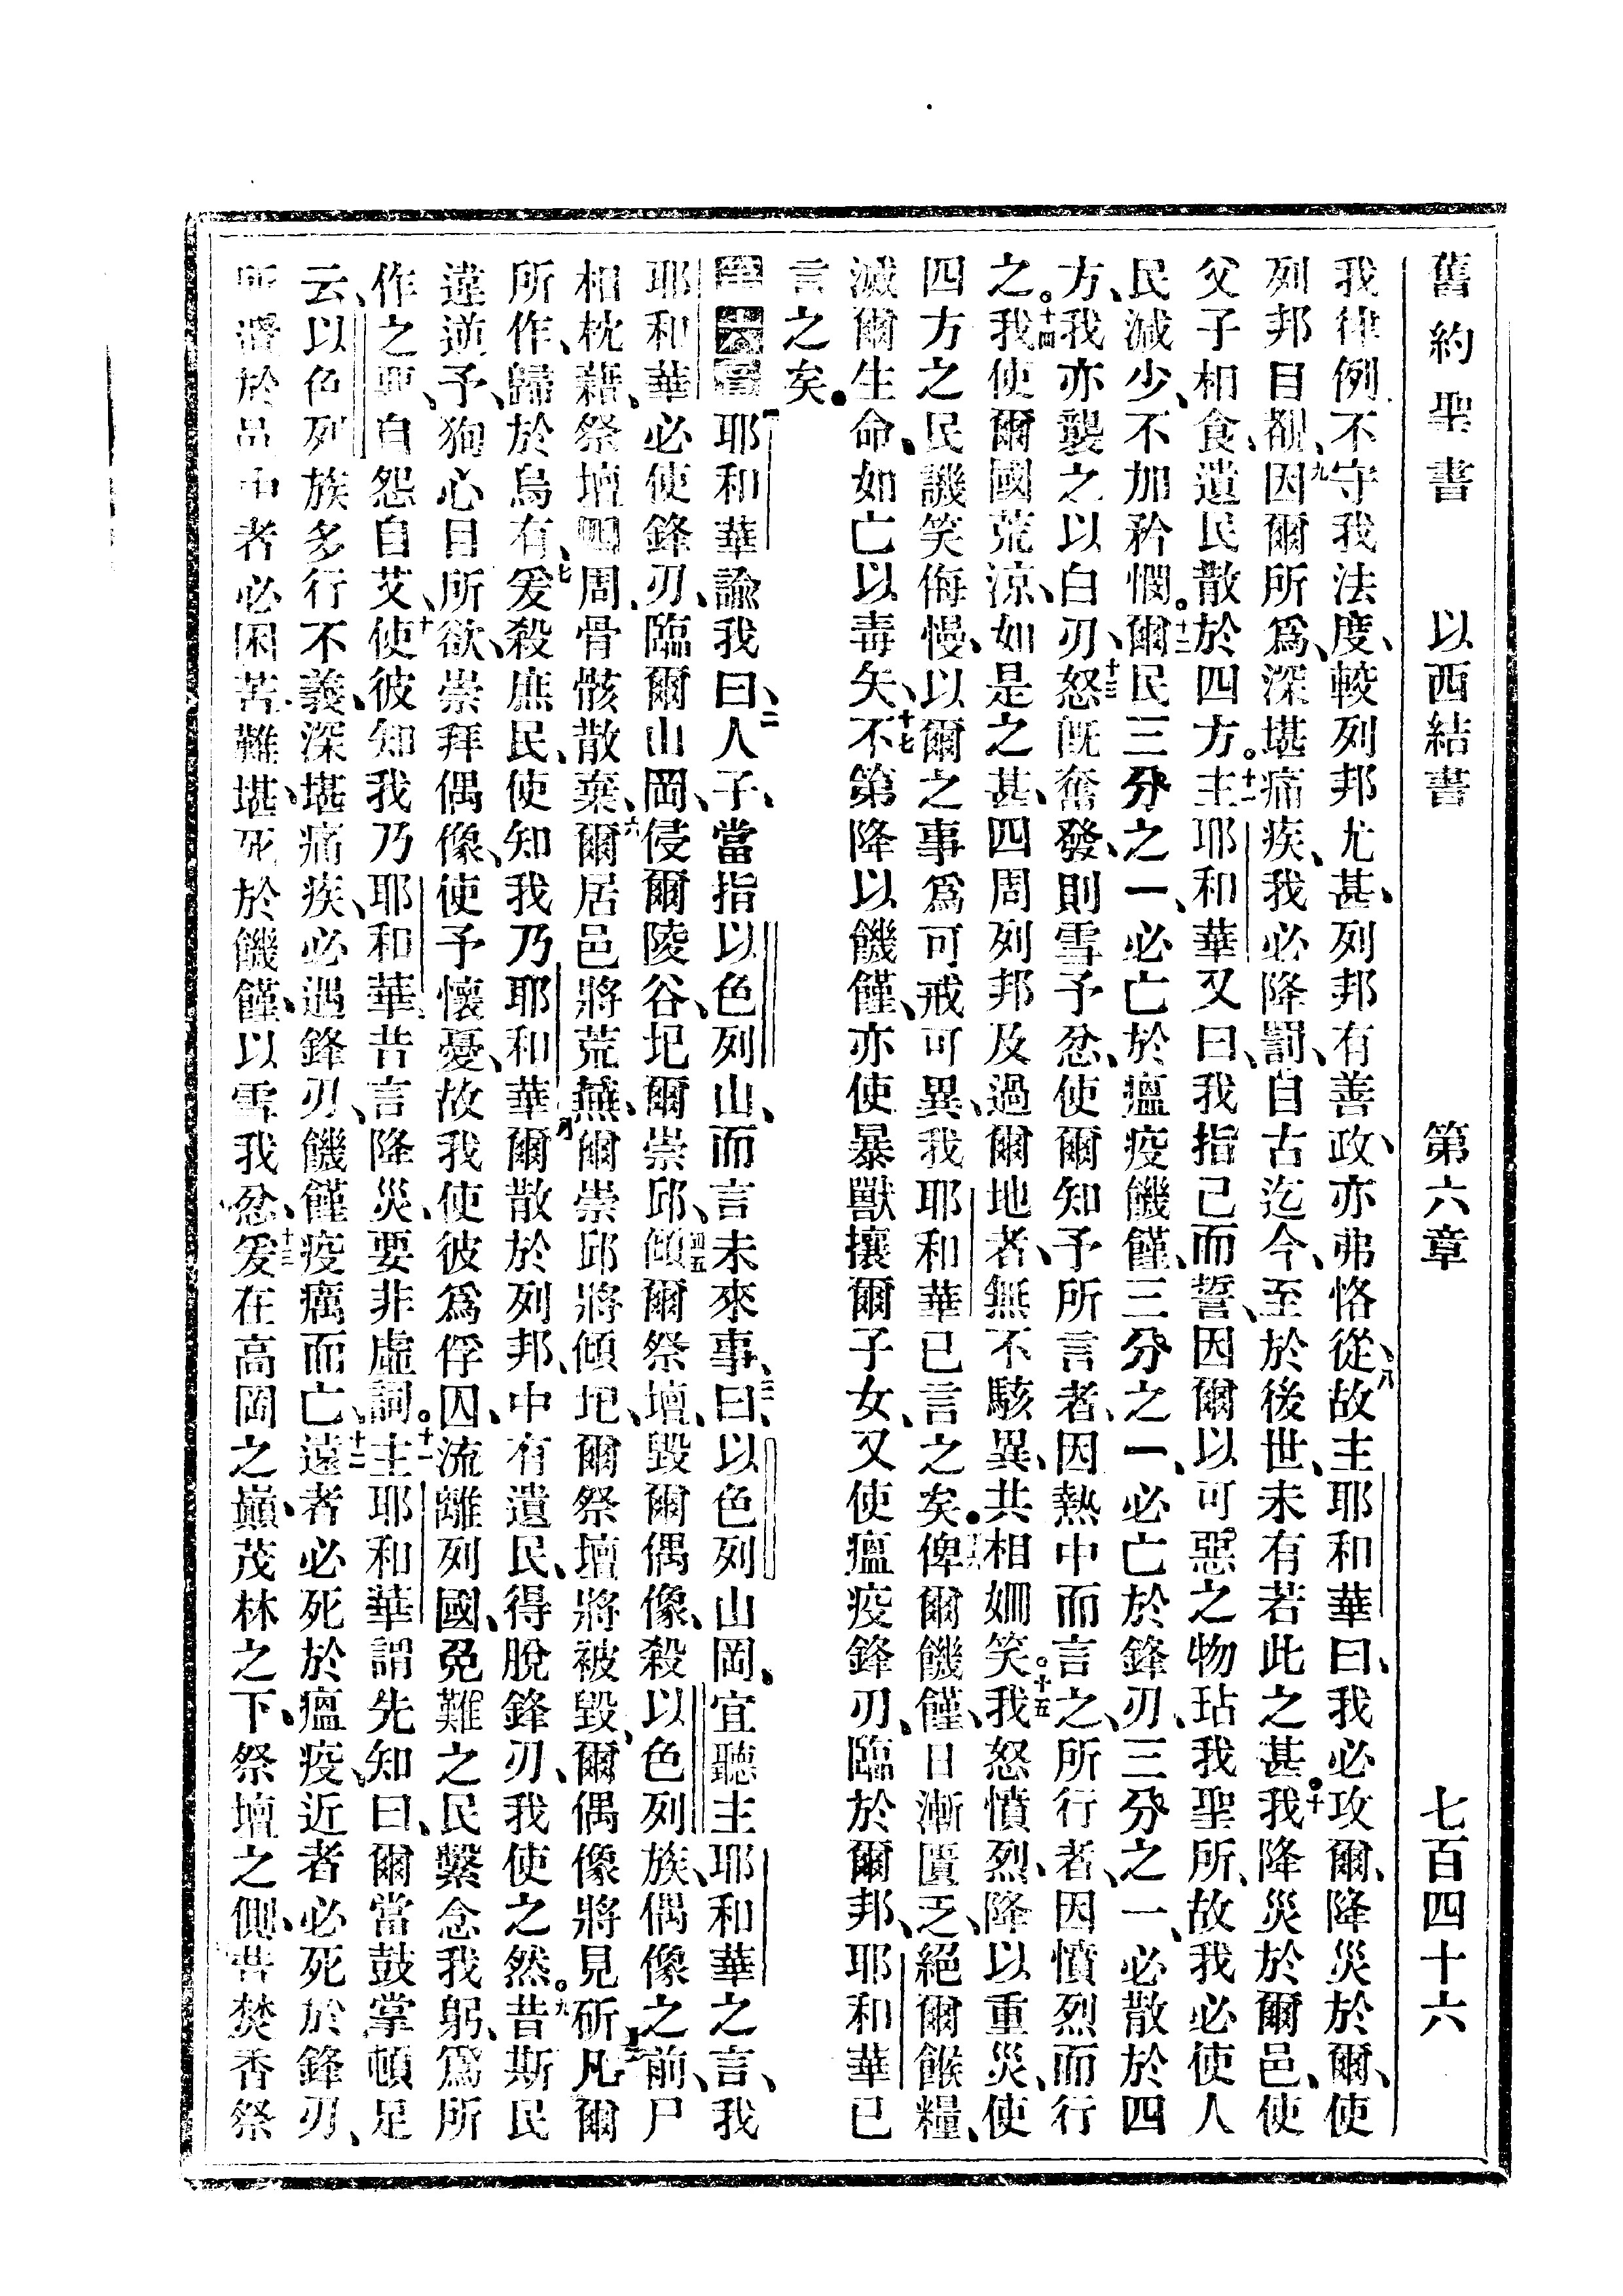 舊約聖書 以西結書 第六章 七百四十六
我律例、不守我法度、較列邦尤甚、列邦有善政、亦弗恪從、八故主耶和華曰、我必攻爾、降災於爾、使
列邦目覩、九因爾所爲、深堪痛疾、我必降罰、自古迄今、至於後世、未有若此之甚。十我降災於爾邑、使
父子相食、遺民散於四方。十一主耶和華又曰、我指己而誓、因爾以可惡之物、玷我聖所、故我必使人
民減少、不加矜憫。十二爾民三分之一、必亡於瘟疫饑饉、三分之一、必亡於鋒刃、三分之一、必散於四
方、我亦襲之以白刃、十三怒旣奮發、則雪予忿、使爾知予所言者、因熱中而言之、所行者、因憤烈而行
之。十四我使爾國荒涼、如是之甚、四周列邦、及過爾地者、無不駭異、共相姍笑。十五我怒憤烈、降以重災、使
四方之民、譏笑侮慢、以爾之事爲可戒可異、我耶和華已言之矣。俾爾饑饉、日漸匱乏、絕爾餱糧、
滅爾生命、如亡以毒矢、十七不第降以饑饉、亦使暴獸攘爾子女、又使瘟疫鋒刃、臨於爾邦、耶和華已
言之矣。
第六章 一耶和華諭我曰、二人子、當指以色列山、而言未來事、三曰、以色列山岡、宜聽主耶和華之言、我
耶和華必使鋒刃、臨爾山岡、侵爾陵谷、圮爾崇邱、四五傾爾祭壇、毀爾偶像、殺以色列族、偶像之前、尸
相枕藉、祭壇四周、骨骸散棄、六爾居邑將荒蕪、爾崇邱將傾圮、爾祭壇將被毀、爾偶像將見斫、凡爾
所作、歸於烏有、七爰殺庶民、使知我乃耶和華、八爾散於列邦、中有遺民、得脫鋒刃、我使之然。九昔斯民
違逆予、狥心目所欲、崇拜偶像、使予懷憂、故我使彼爲俘囚、流離列國、免難之民、繫念我躬、爲所
作之惡、自怨自艾、十使彼知我乃耶和華、昔言降災、要非虛詞。十一主耶和華謂先知曰、爾當鼓掌頓足
云、以色列族多行不義、深堪痛疾、必遇鋒刃、饑饉疫癘而亡、十二遠者必死於瘟疫、近者必死於鋒刃、
所遺於邑中者、必困苦難堪、死於饑饉、以雪我忿、十三爰在高岡之巔、茂林之下、祭壇之側、昔焚香祭